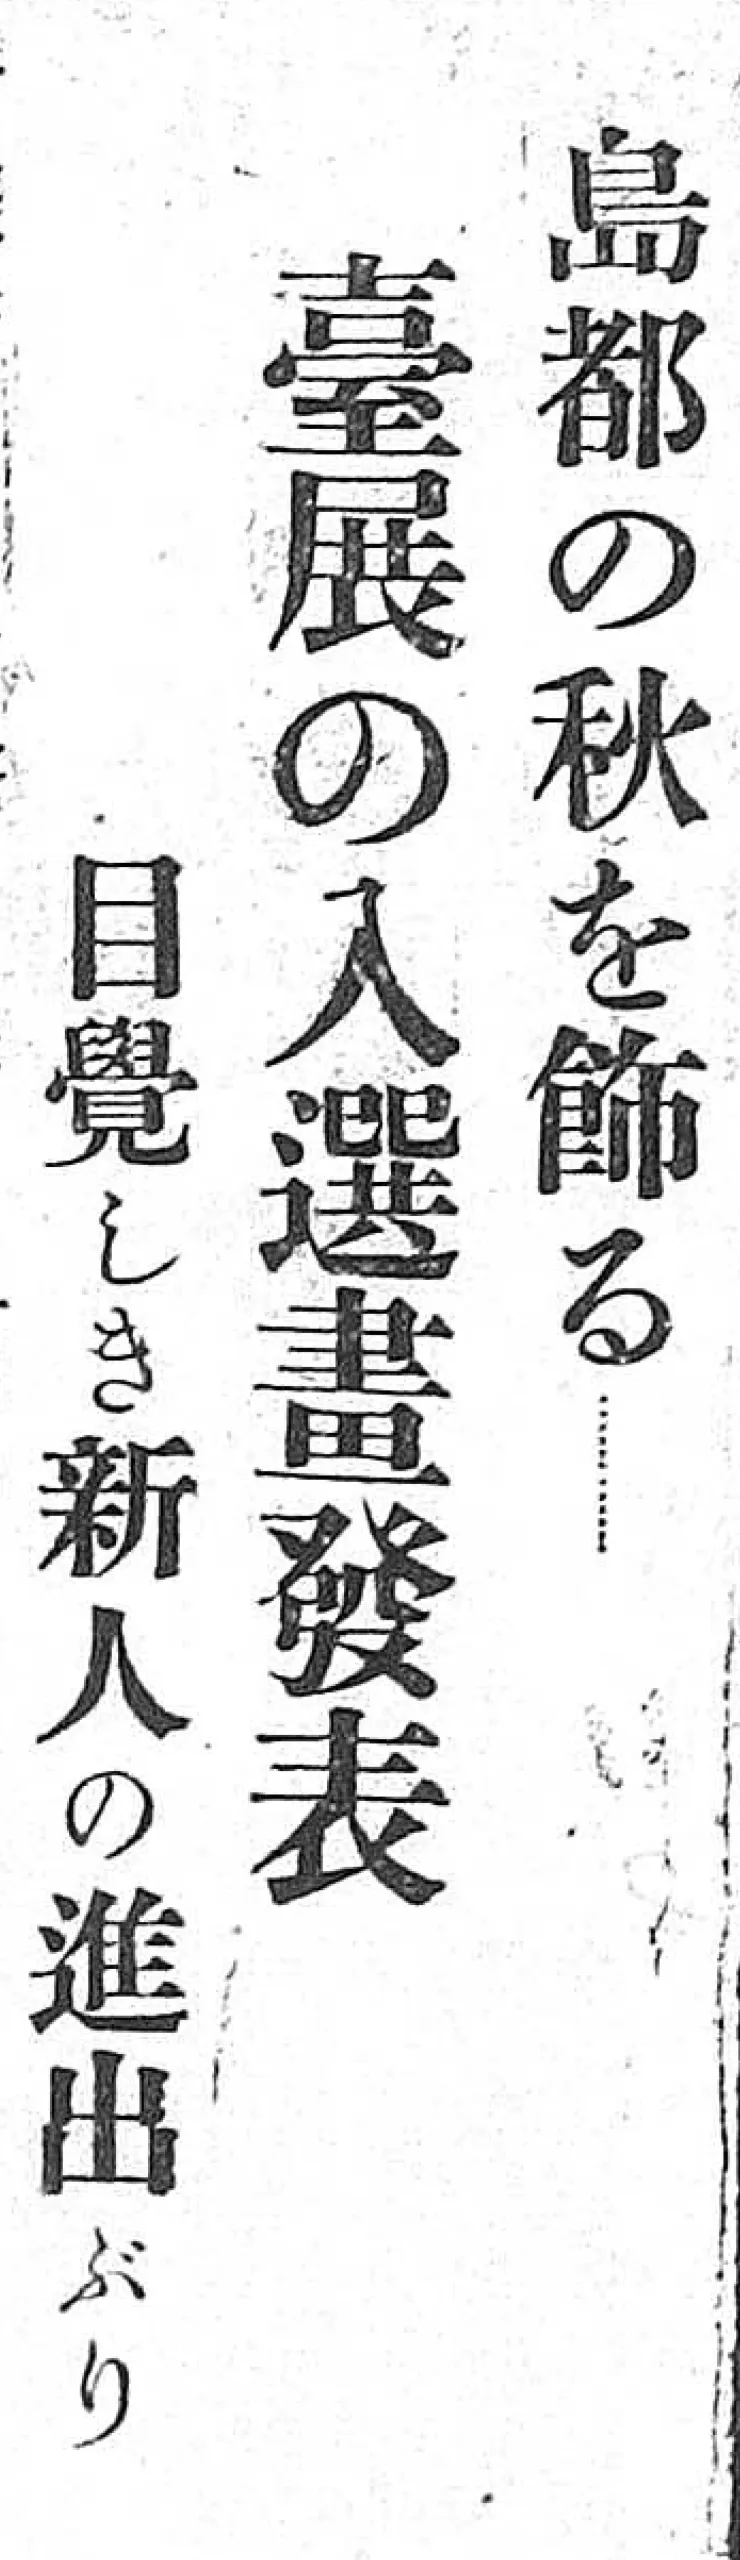 島都の秋を飾る…………
臺展の入選畫發表
目覺しき新人の進出ぶり